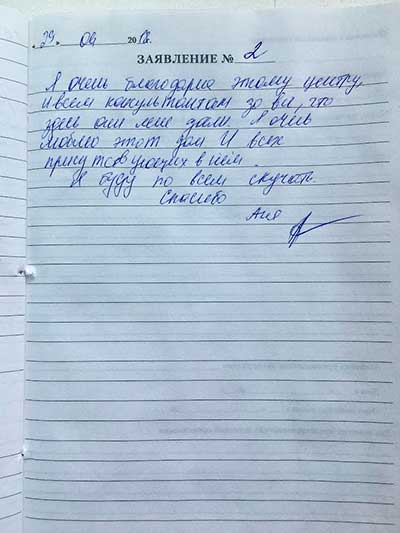 „29" 04 2018г.
ЗАЯВЛЕНИЕ № 2
Я очень благодарна этому центру,
и всем консультантам за все, что
здесь они мне дали. Я очень
люблю этот дом и всех
присутствующих в нём.
Я буду по всем скучать.
Спасибо
Аня